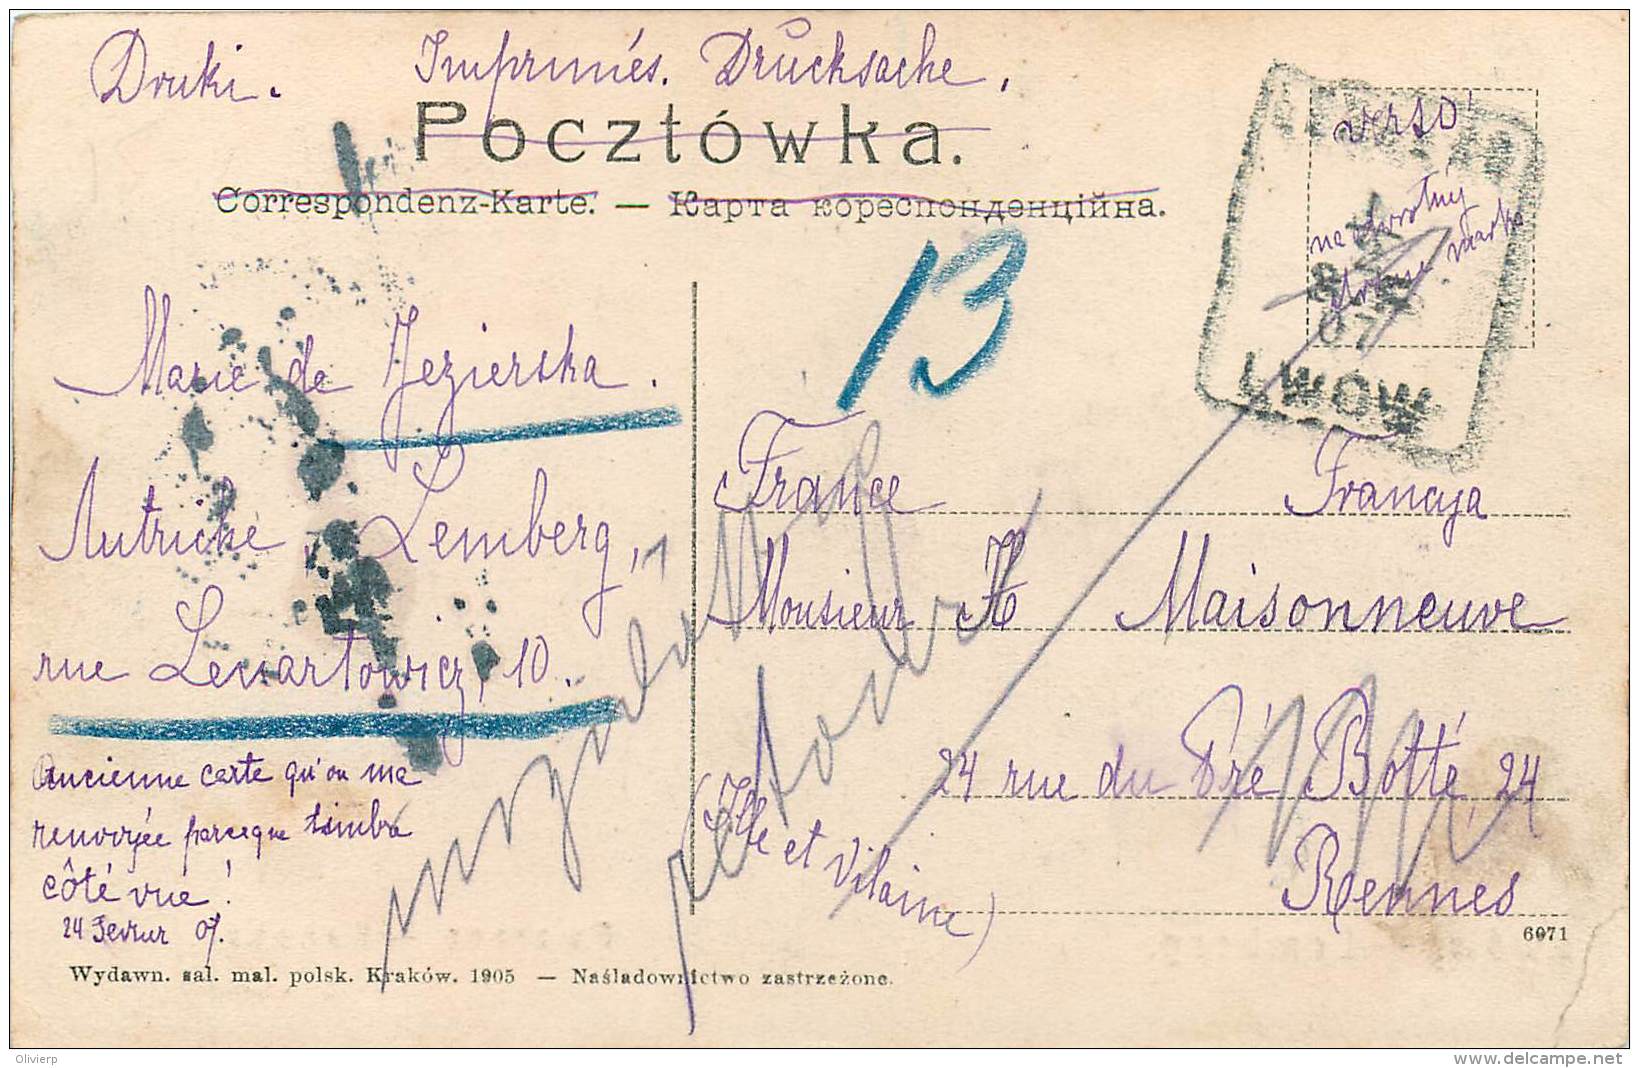 Druki. Imprimés. Drucksache.
Pocztówka.
Correspondenz-Karte. — Карта кореспонденційна.
verso
na odwrotnej
stronie marka
07
LWÓW
13
Marie de Jezierska.
Autriche, Lemberg,
rue Lewartowicz, 10.
Ancienne carte qu'on m'a
renvoyée parceque timbre
côté vue!
24 Fevrier 07.
France Francya
Monsieur H Maisonneuve
24 rue du Pré Botté, 24
(Ille et Vilaine)
Rennes
6071
Wydawn. sal. mal. polsk. Kraków. 1905 — Naśladownictwo zastrzeżone.
Olivierp
www.delcampe.net